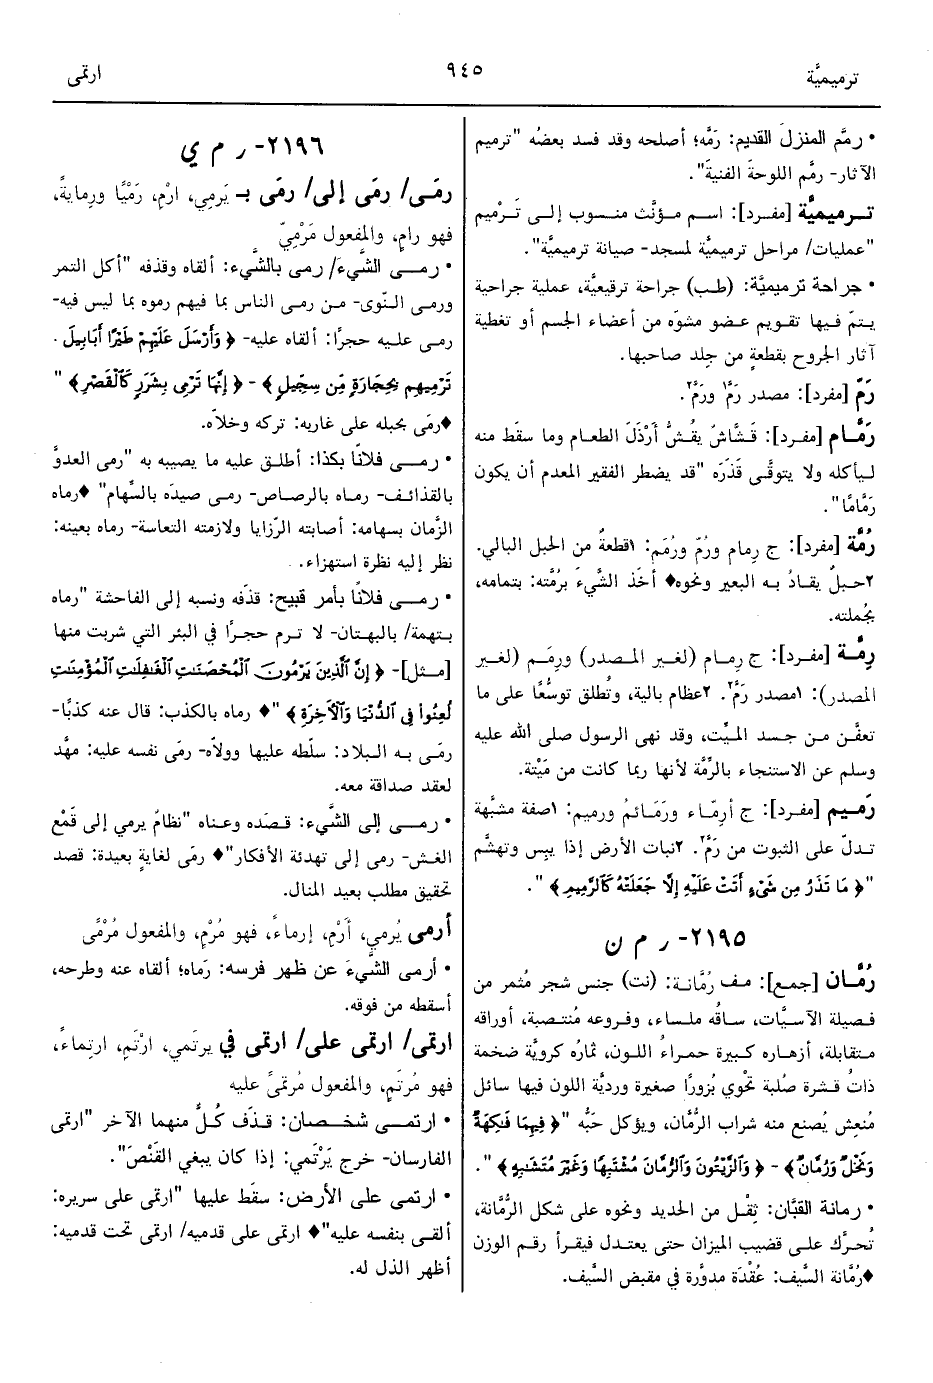 ترميميَّة
٩٤٥
ارتمى
• رمَّم المنزلَ القديم: رَمَّه؛ أصلحه وقد فسد بعضُه "ترميم
الآثار- رمَّم اللوحةَ الفنيةَ".
تـرميميَّة [مفـرد]: اسـم مـؤنَّث منـسوب إلـى تَـرْميم
"عمليات/ مراحل ترميميَّة لمسجد- صيانة ترميميَّة".
• جراحة ترميميَّة: (طـب) جراحة ترقيعيَّة، عملية جراحية
يـتمّ فـيها تقـويم عضـو مشـوّه من أعضاء الجسم أو تغطية
آثار الجروح بقطعةٍ من جِلد صاحبها.
رَمّ [مفرد]: مصدر رَمَّ١ ورَمَّ٢.
رَمَّـام [مفـرد]: قَـشَّاشٌ يقُـشُّ أَرْذَلَ الطعـام ومـا سـقَط منه
لـيأكله ولا يتوقَّـى قَذَرَه "قد يضطر الفقير المعدم أن يكون
رَمَّامًا".
رُمَّة [مفرد]: ج رِمام ورُمّ ورُمَم: ١قطعةٌ من الحبل البالي.
٢حـبلٌ يقـادُ بـه البعير ونحوه♦ أخَذ الشَّيءَ برُمَّته: بتمامه،
بجُملته.
رِمَّـة [مفـرد]: ج رِمـام (لغـير المـصدر) ورِمَـم (لغـير
المصدر): ١مصدر رَمَّ٢. ٢عظام بالية، وتُطلق توسُّعًا على ما
تعفَّـن مـن جـسد المـيِّت، وقد نهى الرسول صلى الله عليه
وسلم عن الاستنجاء بالرِّمَّة لأنها ربما كانت من مَيْتة.
رَمـيم [مفـرد]: ج أرِمَّـاء ورَمَـائمُ ورميم: ١صفة مشبَّهة
تـدلّ على الثبوت من رَمَّ٢. ٢نبات الأرض إذا يبِس وتهشَّم
"﴿ مَا تَذَرُ مِن شَيْءٍ أَتَتْ عَلَيْهِ إِلَّا جَعَلَتْهُ كَٱلرَّمِيمِ ﴾".
٢١٩٥- ر م ن
رُمَّـان [جمع]: مـف رُمَّـانة: (نت) جنس شجر مُثمر من
فـصيلة الآسـيَّات، سـاقُه ملـساء، وفـروعه مُنتـصبة، أوراقه
متقابلة، أزهاره كبيرة حمـراءُ اللـون، ثمـارُه كرويَّة ضخمة
ذاتُ قـشرة صُلبة تحْوي بُزورًا صغيرة ورديَّة اللون فيها سائل
مُنعِش يُصنع منه شراب الرُّمَّان، ويؤكل حَبُّه "﴿ فِيهِمَا فَٰكِهَةٌ
وَنَخْلٌ وَرُمَّانٌ ﴾ - ﴿ وَٱلزَّيْتُونَ وَٱلرُّمَّانَ مُشْتَبِهًا وَغَيْرَ مُتَشَٰبِهٍ ﴾".
• رمانة القبَّان: ثِقْـل من الحديد ونحوه على شكل الرُّمَّانة،
تُحـرَّك علـى قضيب الميزان حتى يعتـدل فيقـرأ رقـم الوزن
♦رُمَّانة السَّيف: عُقْدَة مدوَّرة في مقبض السَّيف.
٢١٩٦- ر م ي
رمَـى/ رمَى إلى/ رمَى بـ يَرمِي، ارْمِ، رَمْيًا ورِمايةً،
فهو رامٍ، والمفعول مَرْمِيّ
• رمـى الشَّيءَ/ رمى بالشَّيء: ألقاه وقذفه "أكل التمر
ورمـى الـنّوى- مـن رمـى الناس بما فيهم رموه بما ليس فيه-
رمـى علـيه حجرًا: ألقـاه عليه- ﴿ وَأَرْسَلَ عَلَيْهِمْ طَيْرًا أَبَابِيلَ .
تَرْمِيهِم بِحِجَارَةٍ مِّن سِجِّيلٍ ﴾ - ﴿ إِنَّهَا تَرْمِي بِشَرَرٍ كَٱلْقَصْرِ ﴾"
♦رمَى بحبله على غاربه: تركه وخلاّه.
• رمـى فلانًا بكذا: أطلق عليه ما يصيبه به "رمى العدوَّ
بالقذائف- رماه بالرصاص- رمى صيدَه بالسِّهام" ♦رماه
الزَّمان بسهامه: أصابته الرّزايا ولازمته التعاسة- رماه بعينه:
نظر إليه نظرة استهزاء.
• رمـى فلانًا بأمر قبيح: قذفه ونسبه إلى الفاحشة "رماه
بـتهمة/ بالبهتان- لا تـرم حجـرًا في البئر التي شربت منها
[مـثل]- ﴿ إِنَّ ٱلَّذِينَ يَرْمُونَ ٱلْمُحْصَنَٰتِ ٱلْغَٰفِلَٰتِ ٱلْمُؤْمِنَٰتِ
لُعِنُوا۟ فِي ٱلدُّنْيَا وَٱلْأٓخِرَةِ ﴾" ♦ رماه بالكذب: قال عنه كذبًا-
رمَـى بـه البلاد: سلّطه عليها وولاّه- رمَى نفسه عليه: مهَّد
لعقد صداقة معه.
• رمـى إلى الشَّيء: قـصَده وعـناه "نظامٌ يرمي إلى قَمْع
الغش- رمى إلى تهدئة الأفكار"♦ رمَى لغايةٍ بعيدة: قصد
تحقيق مطلب بعيد المنال.
أرمى يُرمي، أَرْمِ، إرماءً، فهو مُرْمٍ، والمفعول مُرْمًى
• أرمى الشَّيءَ عن ظهر فرسه: رَماه؛ ألقاه عنه وطرحه،
أسقطه من فوقه.
ارتمَى/ ارتمَى على/ ارتمَى في يرتَمي، ارْتَمِ، ارتِماءً،
فهو مُرتَمٍ، والمفعول مُرتمًى عليه
• ارتمـى شـخـصان: قـذَف كُـلٌّ منهمـا الآخر "ارتمى
الفارسان- خرج يَرْتَمي: إذا كان يبغي القَنْصَ".
• ارتمى على الأرض: سقَط عليها "ارتمى على سريره:
ألقى بنفسه عليه"♦ ارتمى على قدميه/ ارتمى تحت قدميه:
أظهر الذل له.